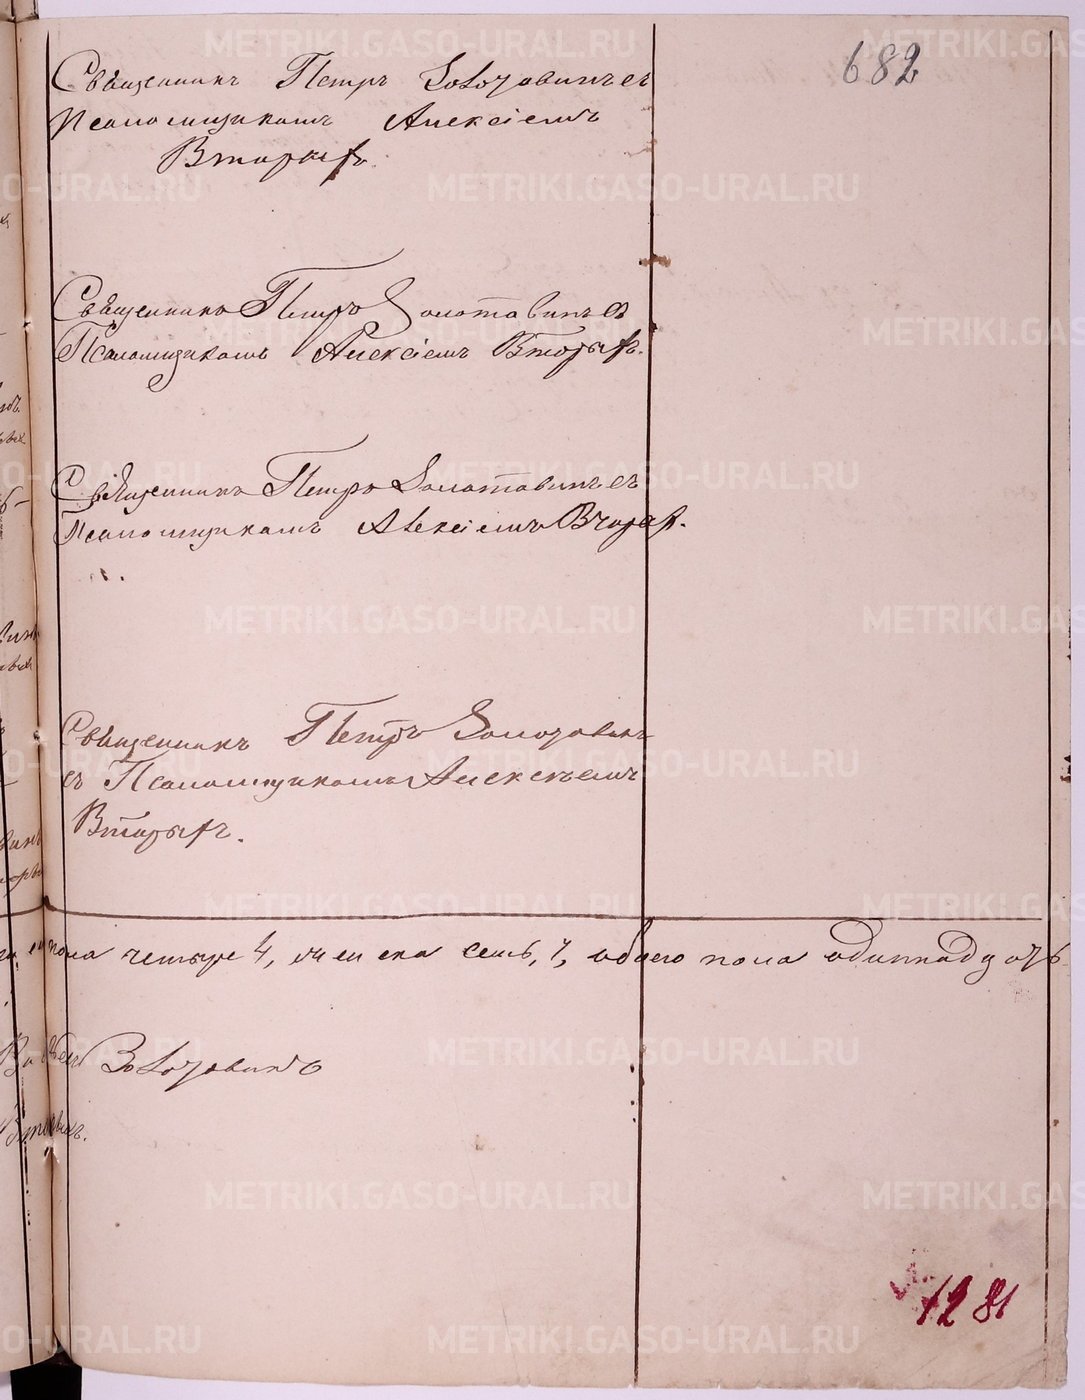 682
Священникъ Петръ Золотовинъ съ
Псаломщикомъ Алексіемъ
Вторыхъ.
Священникъ Петръ Золотавинъ съ
Псаломщикомъ Алексіемъ Вторыхъ.
Священникъ Петръ Золотавинъ съ
Псаломщикомъ Алексіемъ Вторых.
Священникъ Петръ Золотовинъ
съ Псаломщикомъ Алексѣемъ
Вторыхъ.
пола четыре 4, женска семь, 7, обоего пола одиннадцать
Золотовинъ
Вторыхъ.
1281
METRIKI.GASO-URAL.RU